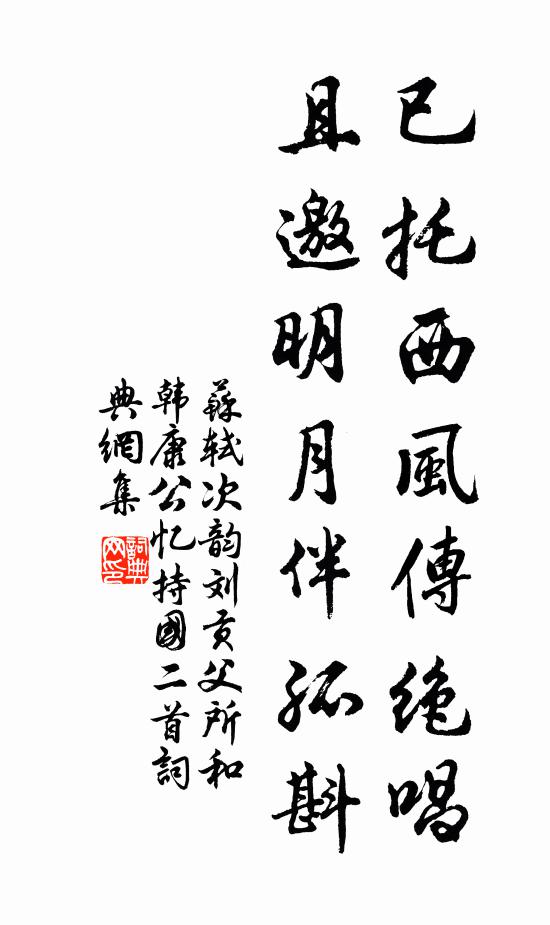 已托西風傳绝唱
且邀明月伴孤斟
蘇轼次韵刘贡父所和
韩康公忆持國二首詞
典網集
詞典
网印